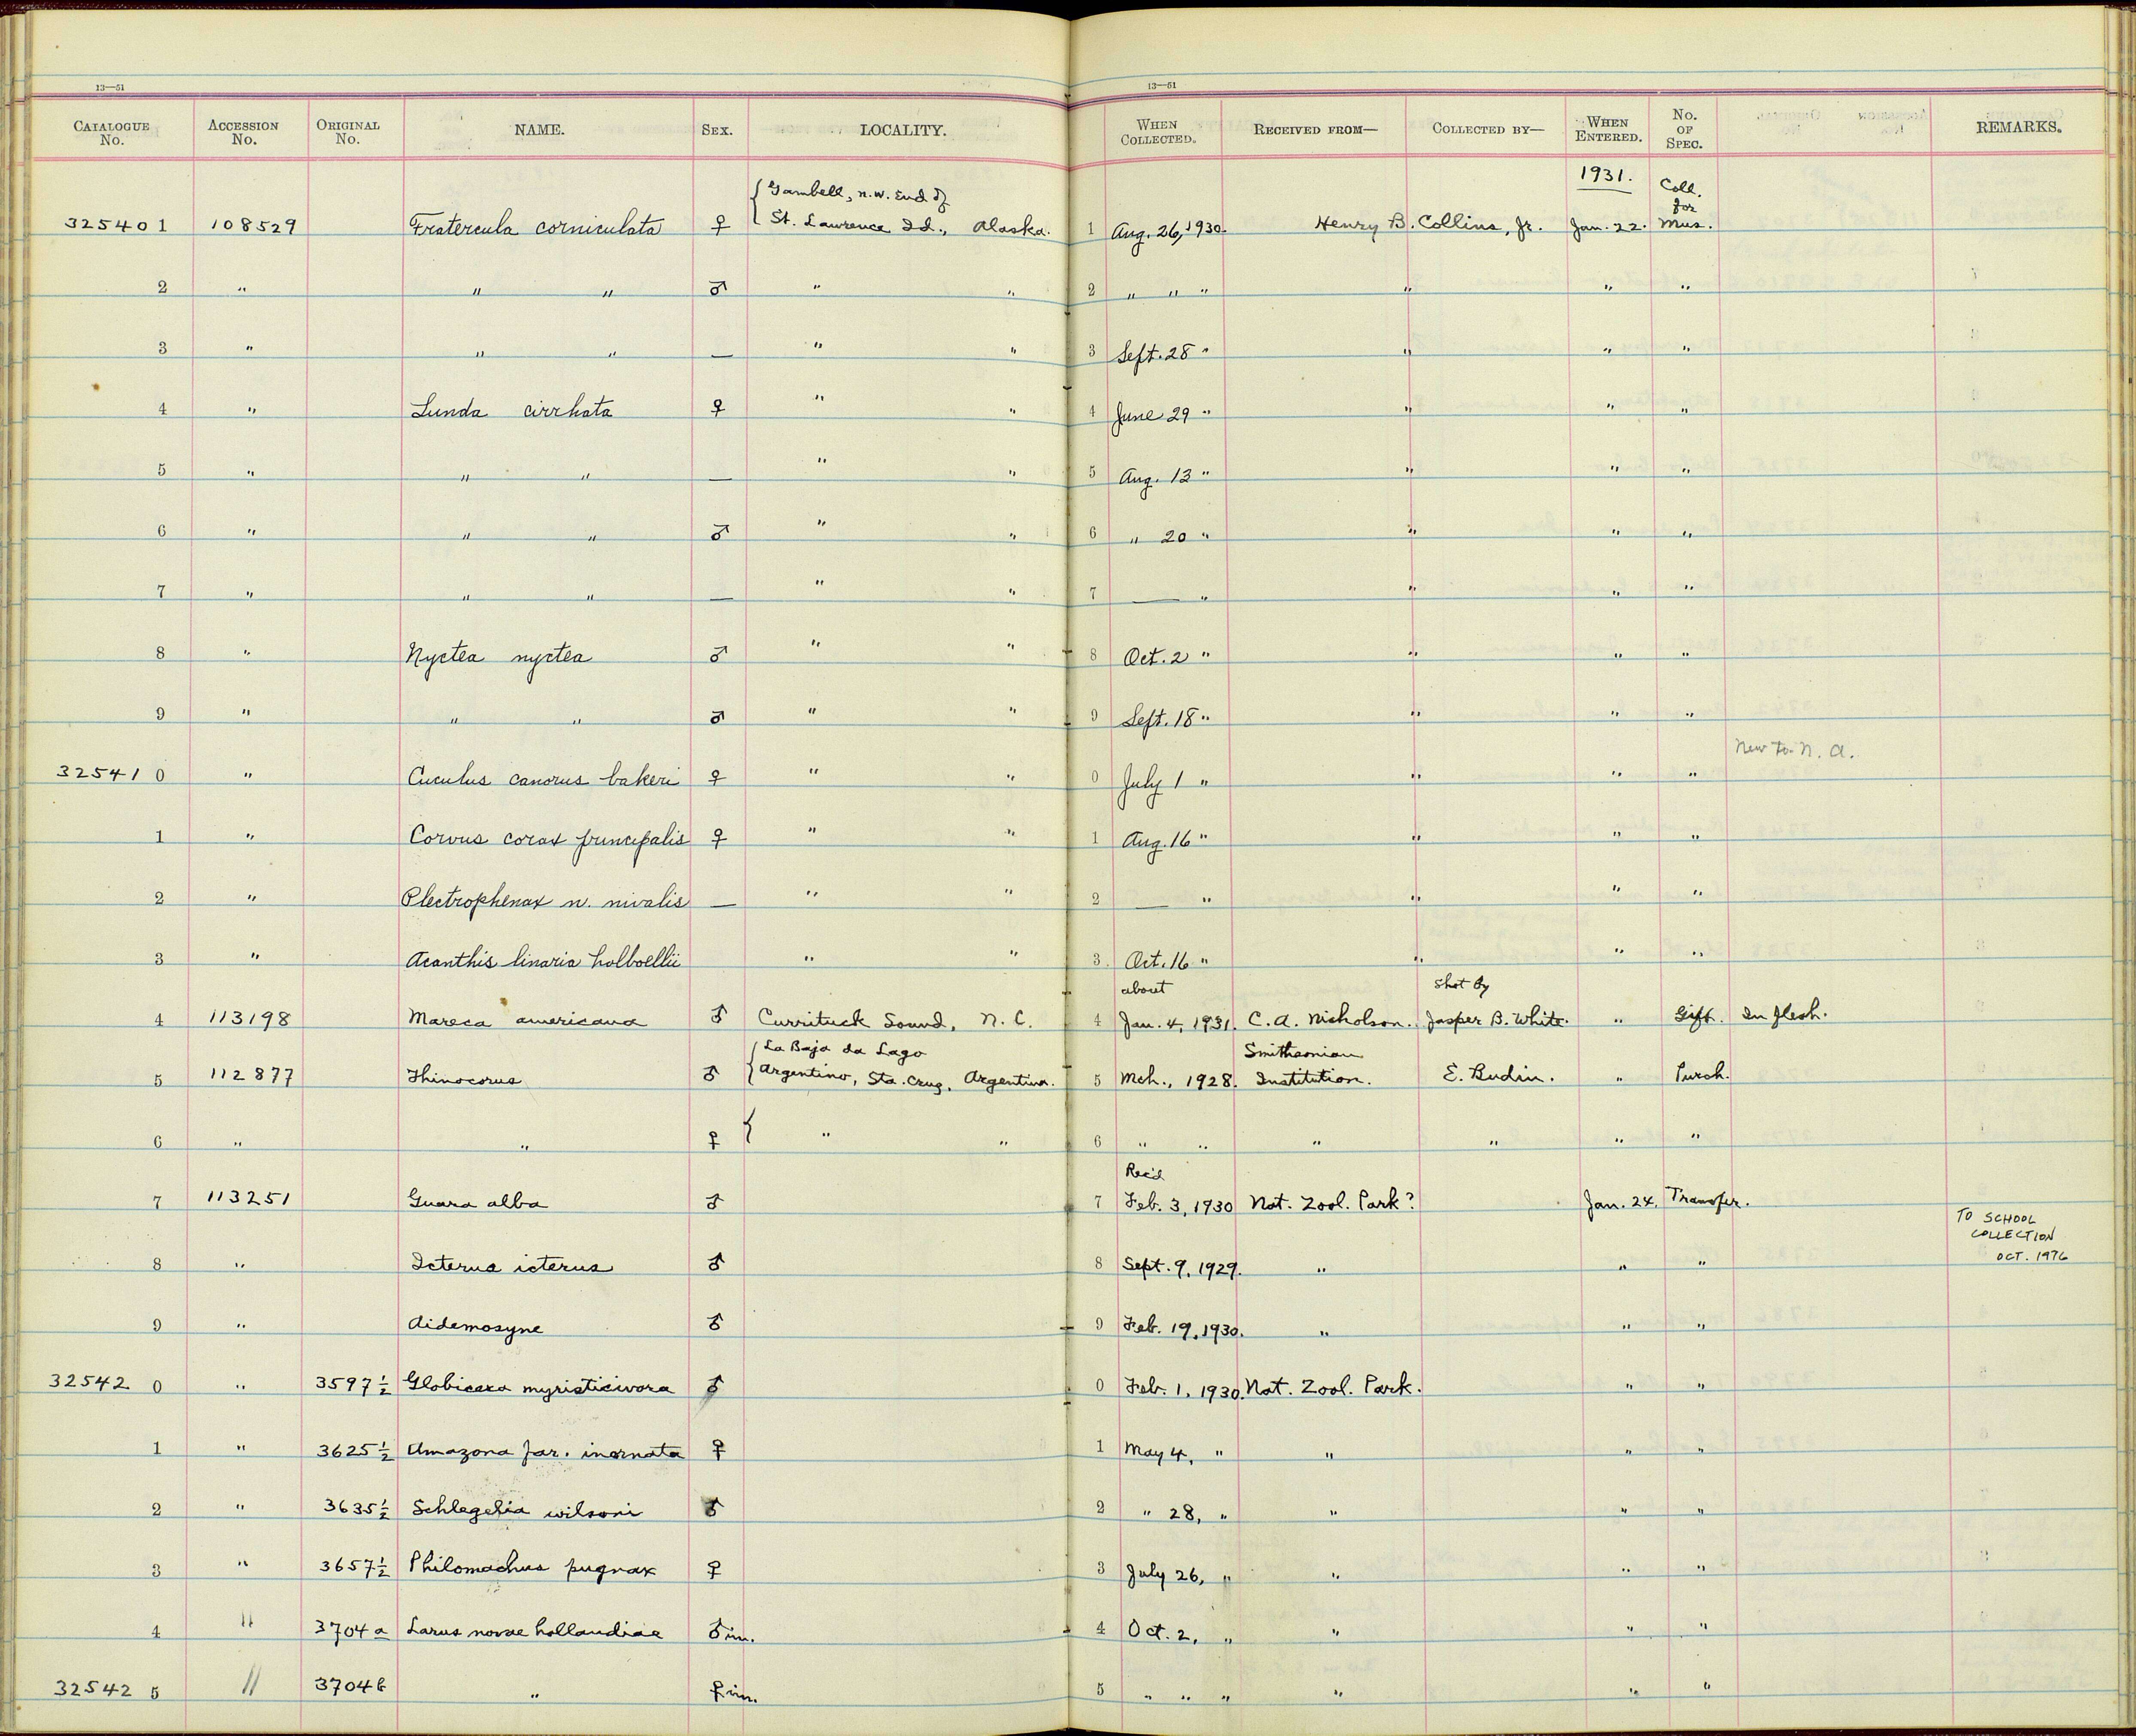 13—51 13—51
CATALOGUE No. ACCESSION No. ORIGINAL No. NAME. SEX. LOCALITY. WHEN COLLECTED. RECEIVED FROM— COLLECTED BY— WHEN ENTERED. No. OF SPEC. REMARKS.
1931.
{ Gambell, n.w. End of Coll. for
325401 108529 Fratercula corniculata ♀ St. Lawrence Id., Alaska. 1 Aug. 26, 1930. Henry B. Collins, Jr. Jan. 22. Mus.
2 " " " ♂ " " 2 " " " " " "
3 " " " — " " 3 Sept. 28 " " " "
4 " Lunda cirrhata ♀ " " 4 June 29 " " " "
5 " " " — " " 5 Aug. 13 " " " "
6 " " " ♂ " " 6 " 20 " " " "
7 " " " — " " 7 — " " " "
8 " Nyctea nyctea ♂ " " 8 Oct. 2 " " " "
9 " " " ♂ " " 9 Sept. 18 " " " "
New to N. A.
325410 " Cuculus canorus bakeri ♀ " " 0 July 1 " " " "
1 " Corvus corax principalis ♀ " " 1 Aug. 16 " " " "
2 " Plectrophenax n. nivalis — " " 2 — " " " "
3 " Acanthis linaria holboellii " " 3 Oct. 16 " " " "
about Shot by
4 113198 Mareca americana ♂ Currituck Sound, N. C. 4 Jan. 4, 1931. C. A. Nicholson. Jasper B. White. " Gift. In flesh.
{ La Baja da Lago Smithsonian
5 112877 Thinocorus ♂ Argentino, Sta. Cruz, Argentina. 5 Mch., 1928. Institution. E. Budin. " Purch.
6 " " ♀ { " " 6 " " " " " "
Rec'd
7 113251 Guara alba ♂ 7 Feb. 3, 1930 Nat. Zool. Park? Jan. 24. Transfer.
TO SCHOOL
COLLECTION
OCT. 1976
8 " Icterus icterus ♂ 8 Sept. 9, 1929. " " "
9 " Aidemosyne ♂ 9 Feb. 19, 1930. " " "
325420 " 3597½ Globicera myristicivora ♂ 0 Feb. 1, 1930. Nat. Zool. Park. " "
1 " 3625½ Amazona far. inornata ♀ 1 May 4, " " " "
2 " 3635½ Schlegelia wilsoni ♂ 2 " 28, " " " "
3 " 3657½ Philomachus pugnax ♀ 3 July 26, " " " "
4 " 3704a Larus novae hollandiae ♂ im. 4 Oct. 2, " " " "
325425 " 3704b " ♀ im. 5 " " " " " "